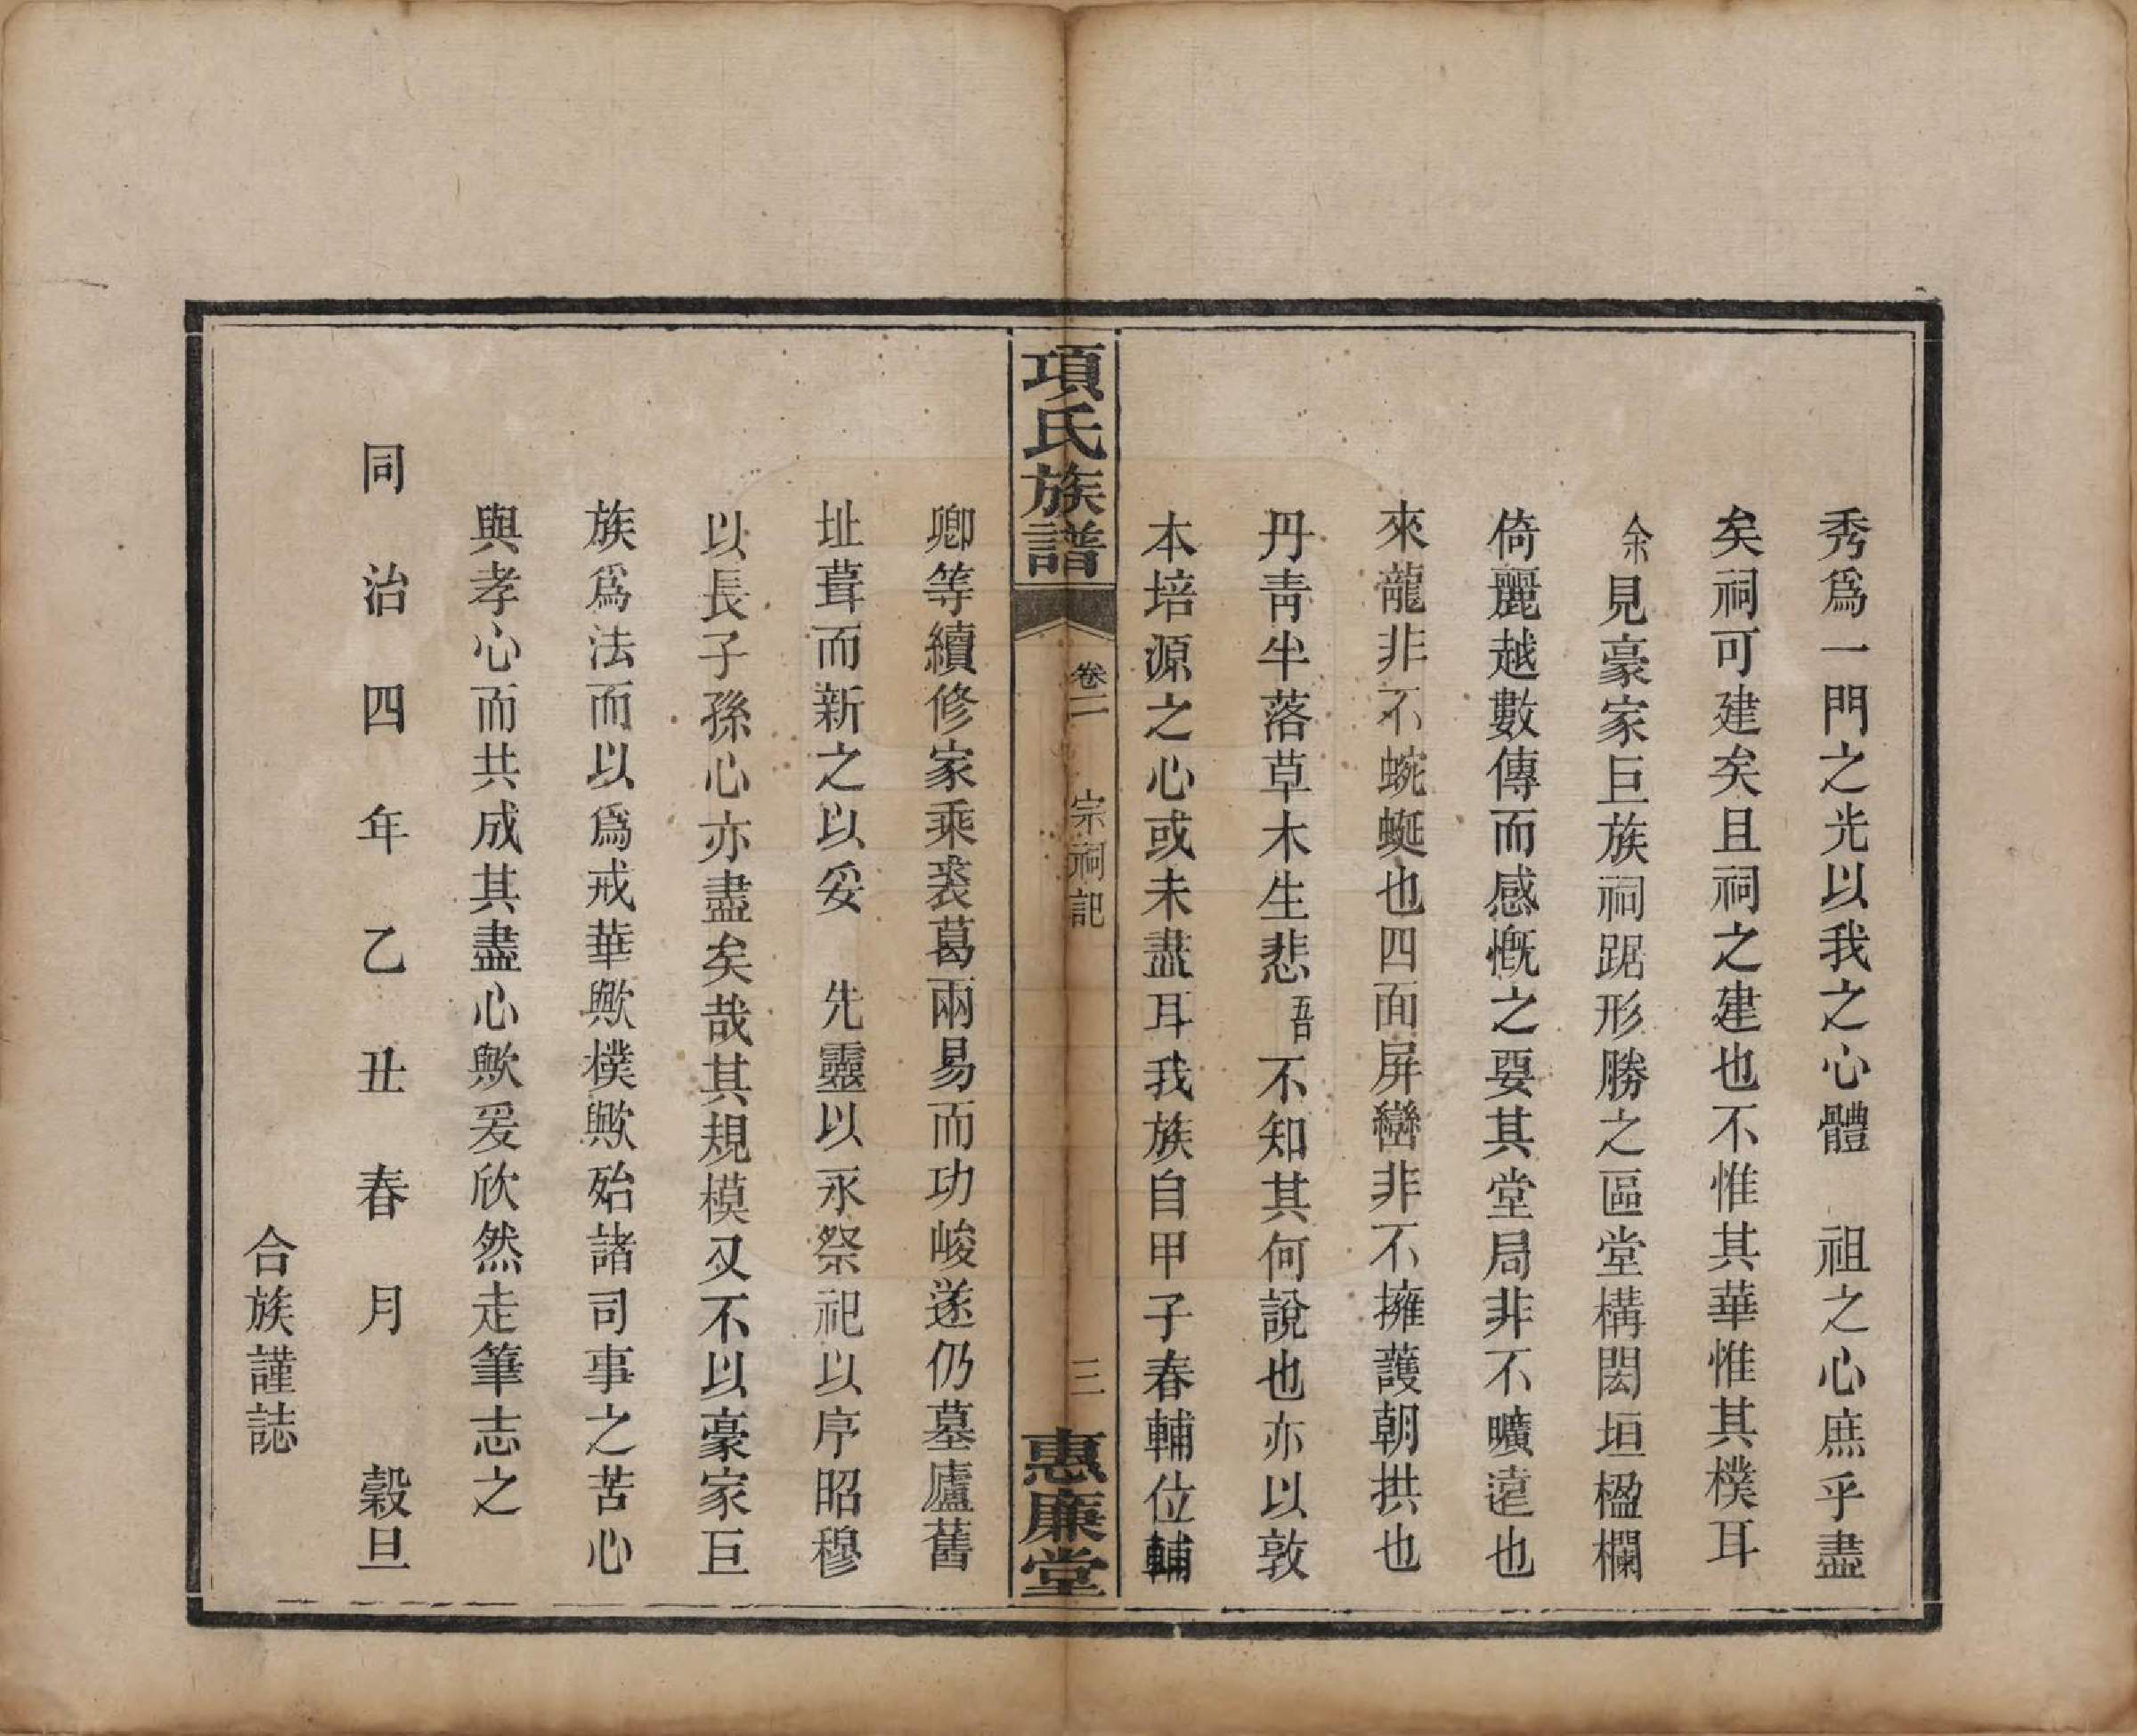 秀爲一門之光以我之心體　祖之心庶乎盡
矣祠可建矣且祠之建也不惟其華惟其樸耳
余見豪家巨族祠踞形勝之區堂構閎垣楹欄
倚麗越數傳而感慨之要其堂局非不曠遠也
來龍非不蜿蜒也四面屏巒非不擁護朝拱也
丹青半落草木生悲吾不知其何說也亦以敦
本培源之心或未盡耳我族自甲子春輔位輔
項氏族譜
卷二
宗祠記
三
惠廉堂
卿等續修家乘裘葛兩易而功峻遂仍墓廬舊
址葺而新之以妥　先靈以永祭祀以序昭穆
以長子孫心亦盡矣哉其規模又不以豪家巨
族爲法而以爲戒華歟樸歟殆諸司事之苦心
與孝心而共成其盡心歟爰欣然走筆志之
同治四年乙丑春月　穀旦
合族謹誌